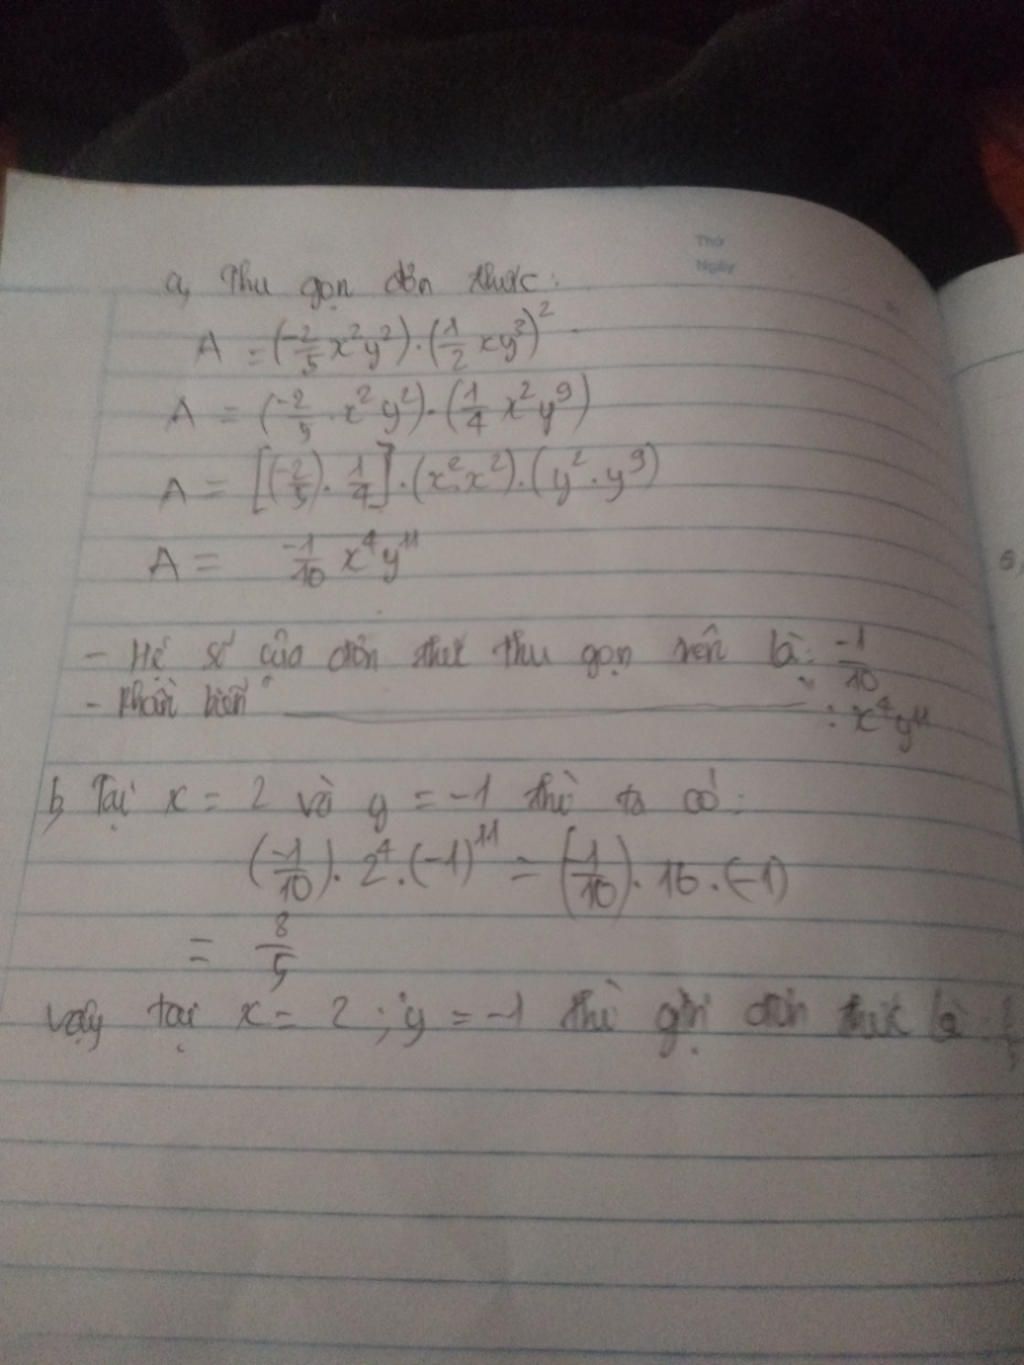 Thứ
Ngày
a, Thu gọn đơn thức:
A = (-2/5 x²y²).(1/2 xy³)²
A = (-2/5 . x²y²).(1/4 x²y⁹)
A = [(-2/5). 1/4].(x².x²).(y².y⁹)
A = -1/10 x⁴y¹¹
- Hệ số của đơn thức thu gọn trên là: -1/10
- Phần biến " : x⁴y¹¹
b, Tại x = 2 và y = -1 thì ta có:
(-1/10). 2⁴.(-1)¹¹ = (-1/10). 16 .(-1)
= 8/5
vậy tại x = 2 ; y = -1 thì gtri đơn thức là: